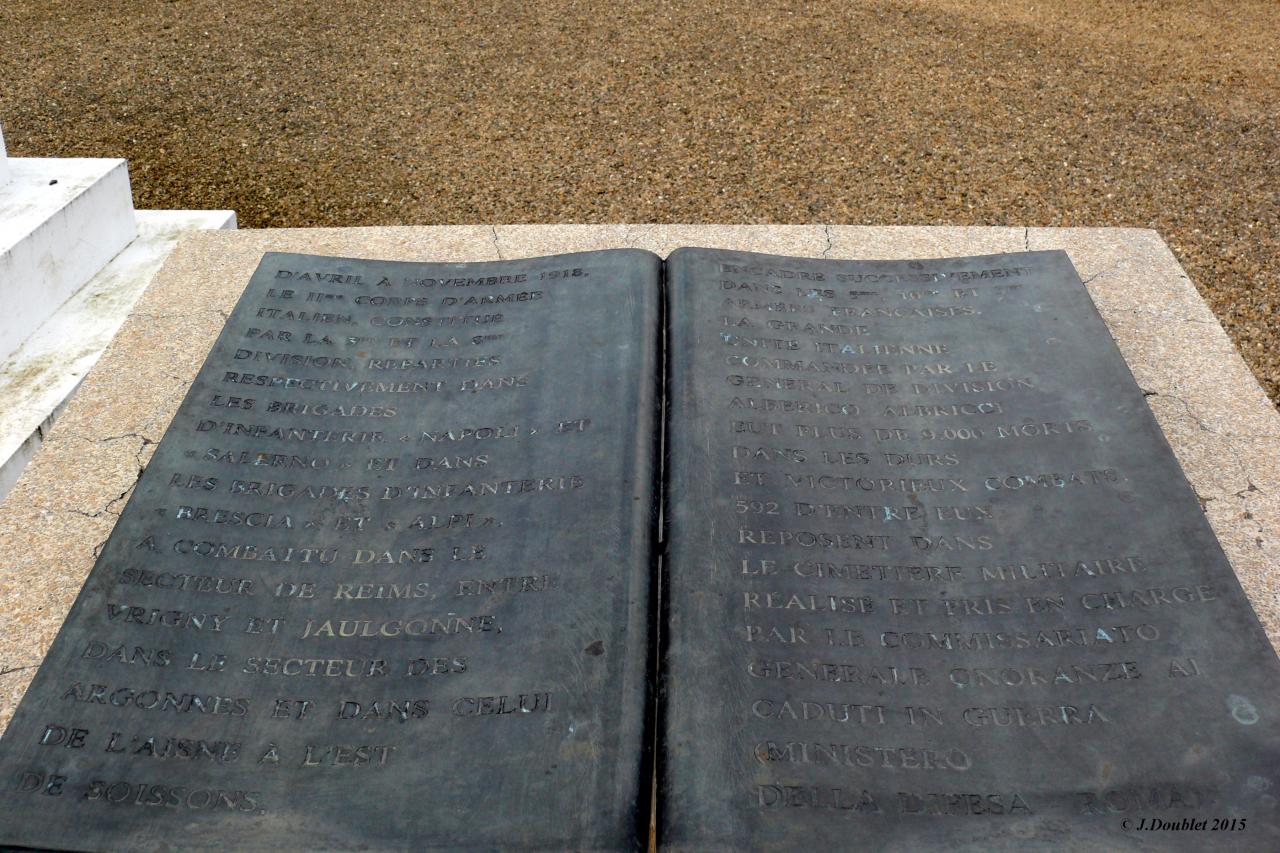 D'AVRIL À NOVEMBRE 1918,
LE IIème CORPS D'ARMÉE
ITALIEN, CONSTITUÉ
PAR LA 3ème ET LA 8ème
DIVISION, REPARTIES
RESPECTIVEMENT DANS
LES BRIGADES
D'INFANTERIE « NAPOLI » ET
« SALERNO » ET DANS
LES BRIGADES D'INFANTERIE
« BRESCIA » ET « ALPI »,
A COMBATTU DANS LE
SECTEUR DE REIMS, ENTRE
VRIGNY ET JAULGONNE,
DANS LE SECTEUR DES
ARGONNES ET DANS CELUI
DE L'AISNE À L'EST
DE SOISSONS.
ENCADRÉ SUCCESSIVEMENT
DANS LES 5ème 10ème ET
ARMÉES FRANÇAISES,
LA GRANDE
UNITÉ ITALIENNE
COMMANDÉE PAR LE
GÉNÉRAL DE DIVISION
ALBERICO ALBRICCI
EUT PLUS DE 9.000 MORTS
DANS LES DURS
ET VICTORIEUX COMBATS.
592 D'ENTRE EUX
REPOSENT DANS
LE CIMETIÈRE MILITAIRE
RÉALISÉ ET PRIS EN CHARGE
PAR LE COMMISSARIATO
GENERALE ONORANZE AI
CADUTI IN GUERRA
(MINISTERO
DELLA DIFESA ROMA)
© J.Doublet 2015